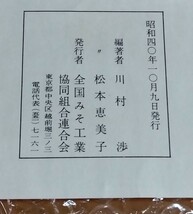 昭和四〇年一〇月九日発行
編著者 川村渉
〃 松本恵美子
発行者 全国みそ工業
協同組合連合会
東京都中央区越前堀三ノ三
電話代表(551)七一六一